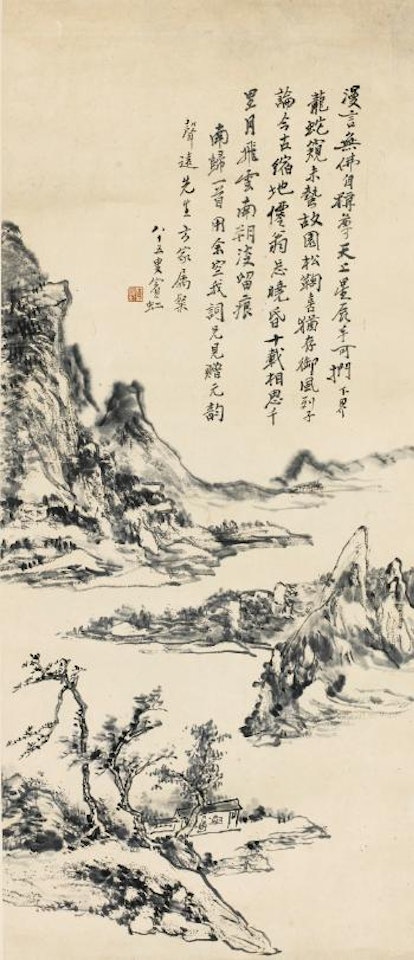 漫言無佛自稱尊天上星辰手可捫下界
龍蛇窺未蟄故園松鞠喜猶存御風列子
論今古縮地僊翁忘曉昏十載相思千
里月飛雲南朔留痕
南歸一首用余空我詞兄見贈元韵
聲遠先生方家屬粲
八十五叟賓虹